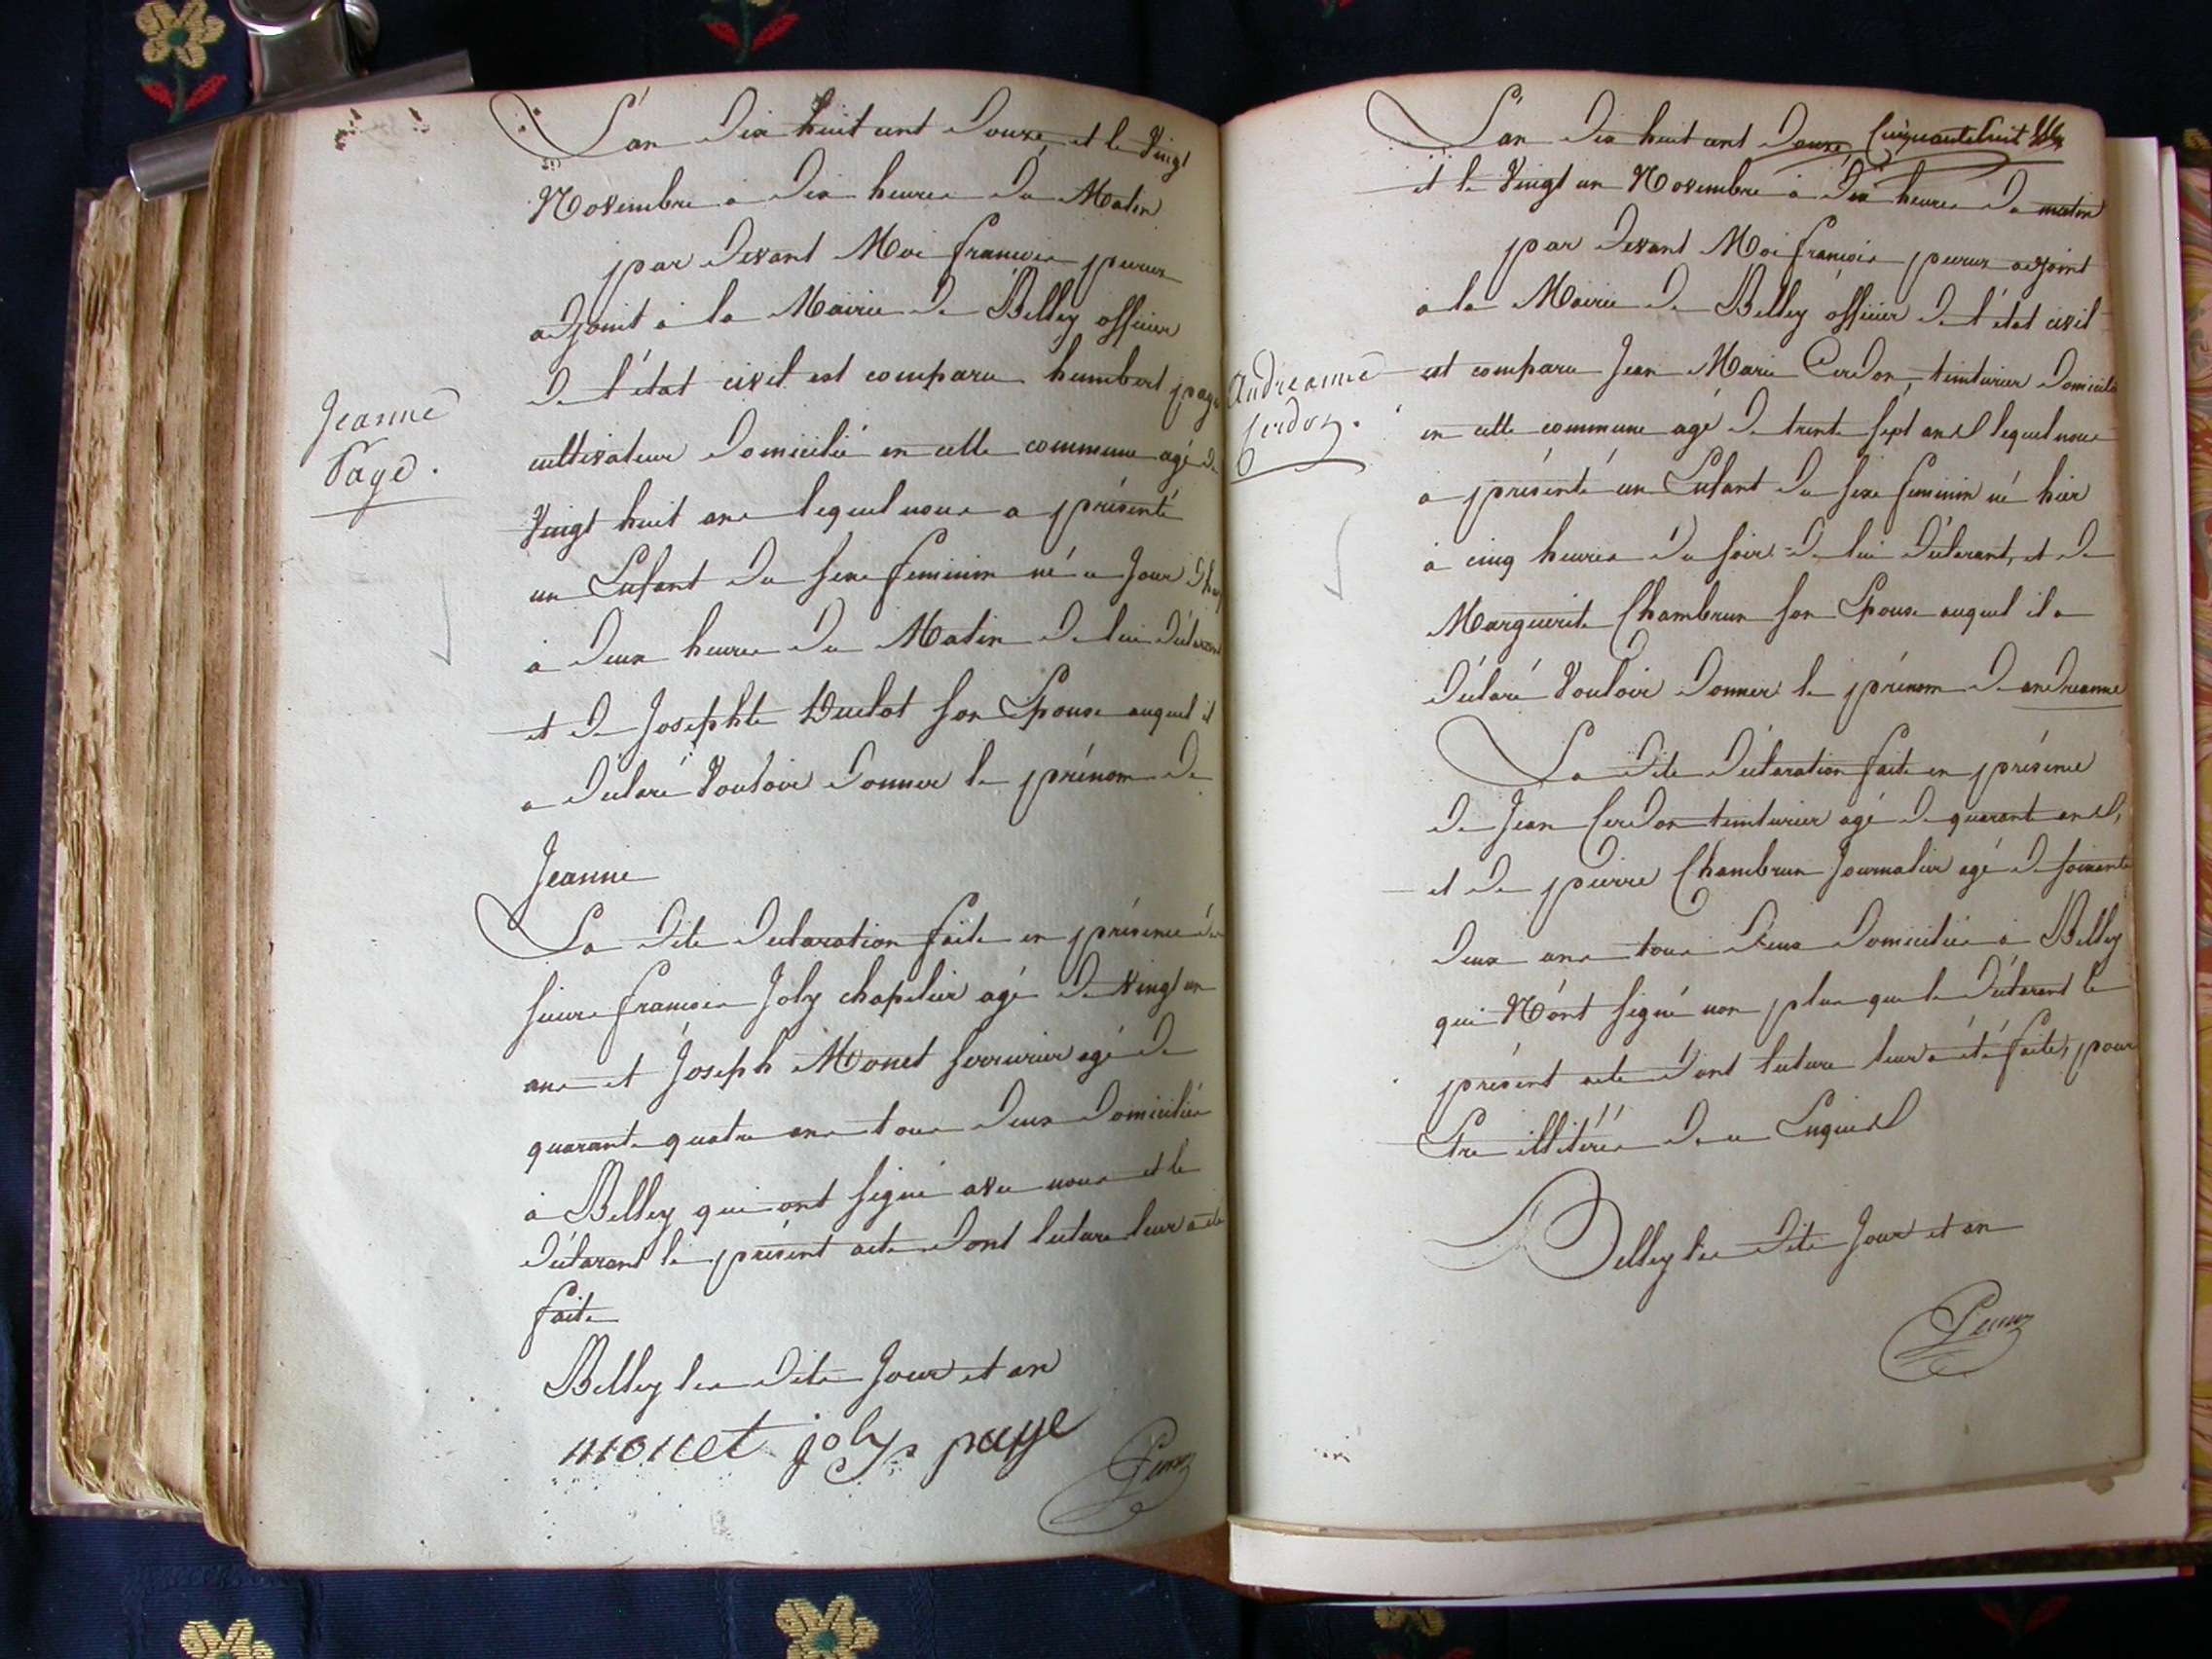 L'an dix huit cent douze, et le Vingt
Novembre a dix heures du Matin
par devant Moi francois
adjoint a la Mairie de Belley officier
de l'état civil est comparu humbert page
cultivateur domicilié en cette commune agé de
Vingt huit ans lequel nous a présenté
un Enfant du sexe feminin né ce jour d'hui
à deux heures du Matin de lui déclarant
et de Josephte son Epouse auquel il
a déclaré Vouloir donner le prénom de
Jeanne
La dite declaration faite en présence de
sieurs francois Joly chapelier agé de Vingt un
ans et Joseph Monet serrurier agé de
quarante quatre ans tous deux domiciliés
à Belley qui ont signé avec nous et le
déclarant le présent acte dont lecture leur a été
faite
Belley les dits Jour et an
monet joly page
Jeanne
Page.
L'an dix huit cent douze Cinquante huit
et le Vingt un Novembre à dix heures du matin
par devant Moi francois adjoint
a la Mairie de Belley officier de l'état civil
est comparu Jean Marie Cerdon, teinturier domicilié
en cette commune agé de trente sept ans lequel nous
a présenté un Enfant du sexe feminin né hier
à cinq heures du soir de lui déclarant, et de
Marguerite Chambrun son Epouse auquel il a
déclaré Vouloir donner le prénom de andreanne
La dite déclaration faite en présence
de Jean Cerdon teinturier agé de quarante ans,
et de pierre Chambrun Journalier agé de soixante
deux ans tous deux domiciliés à Belley
qui N'ont signé non plus que le déclarant le
présent acte dont lecture leur a été faite, pour
Etre illitérés de ce Enquis
Belley les dits Jour et an
Andreanne
Cerdon.